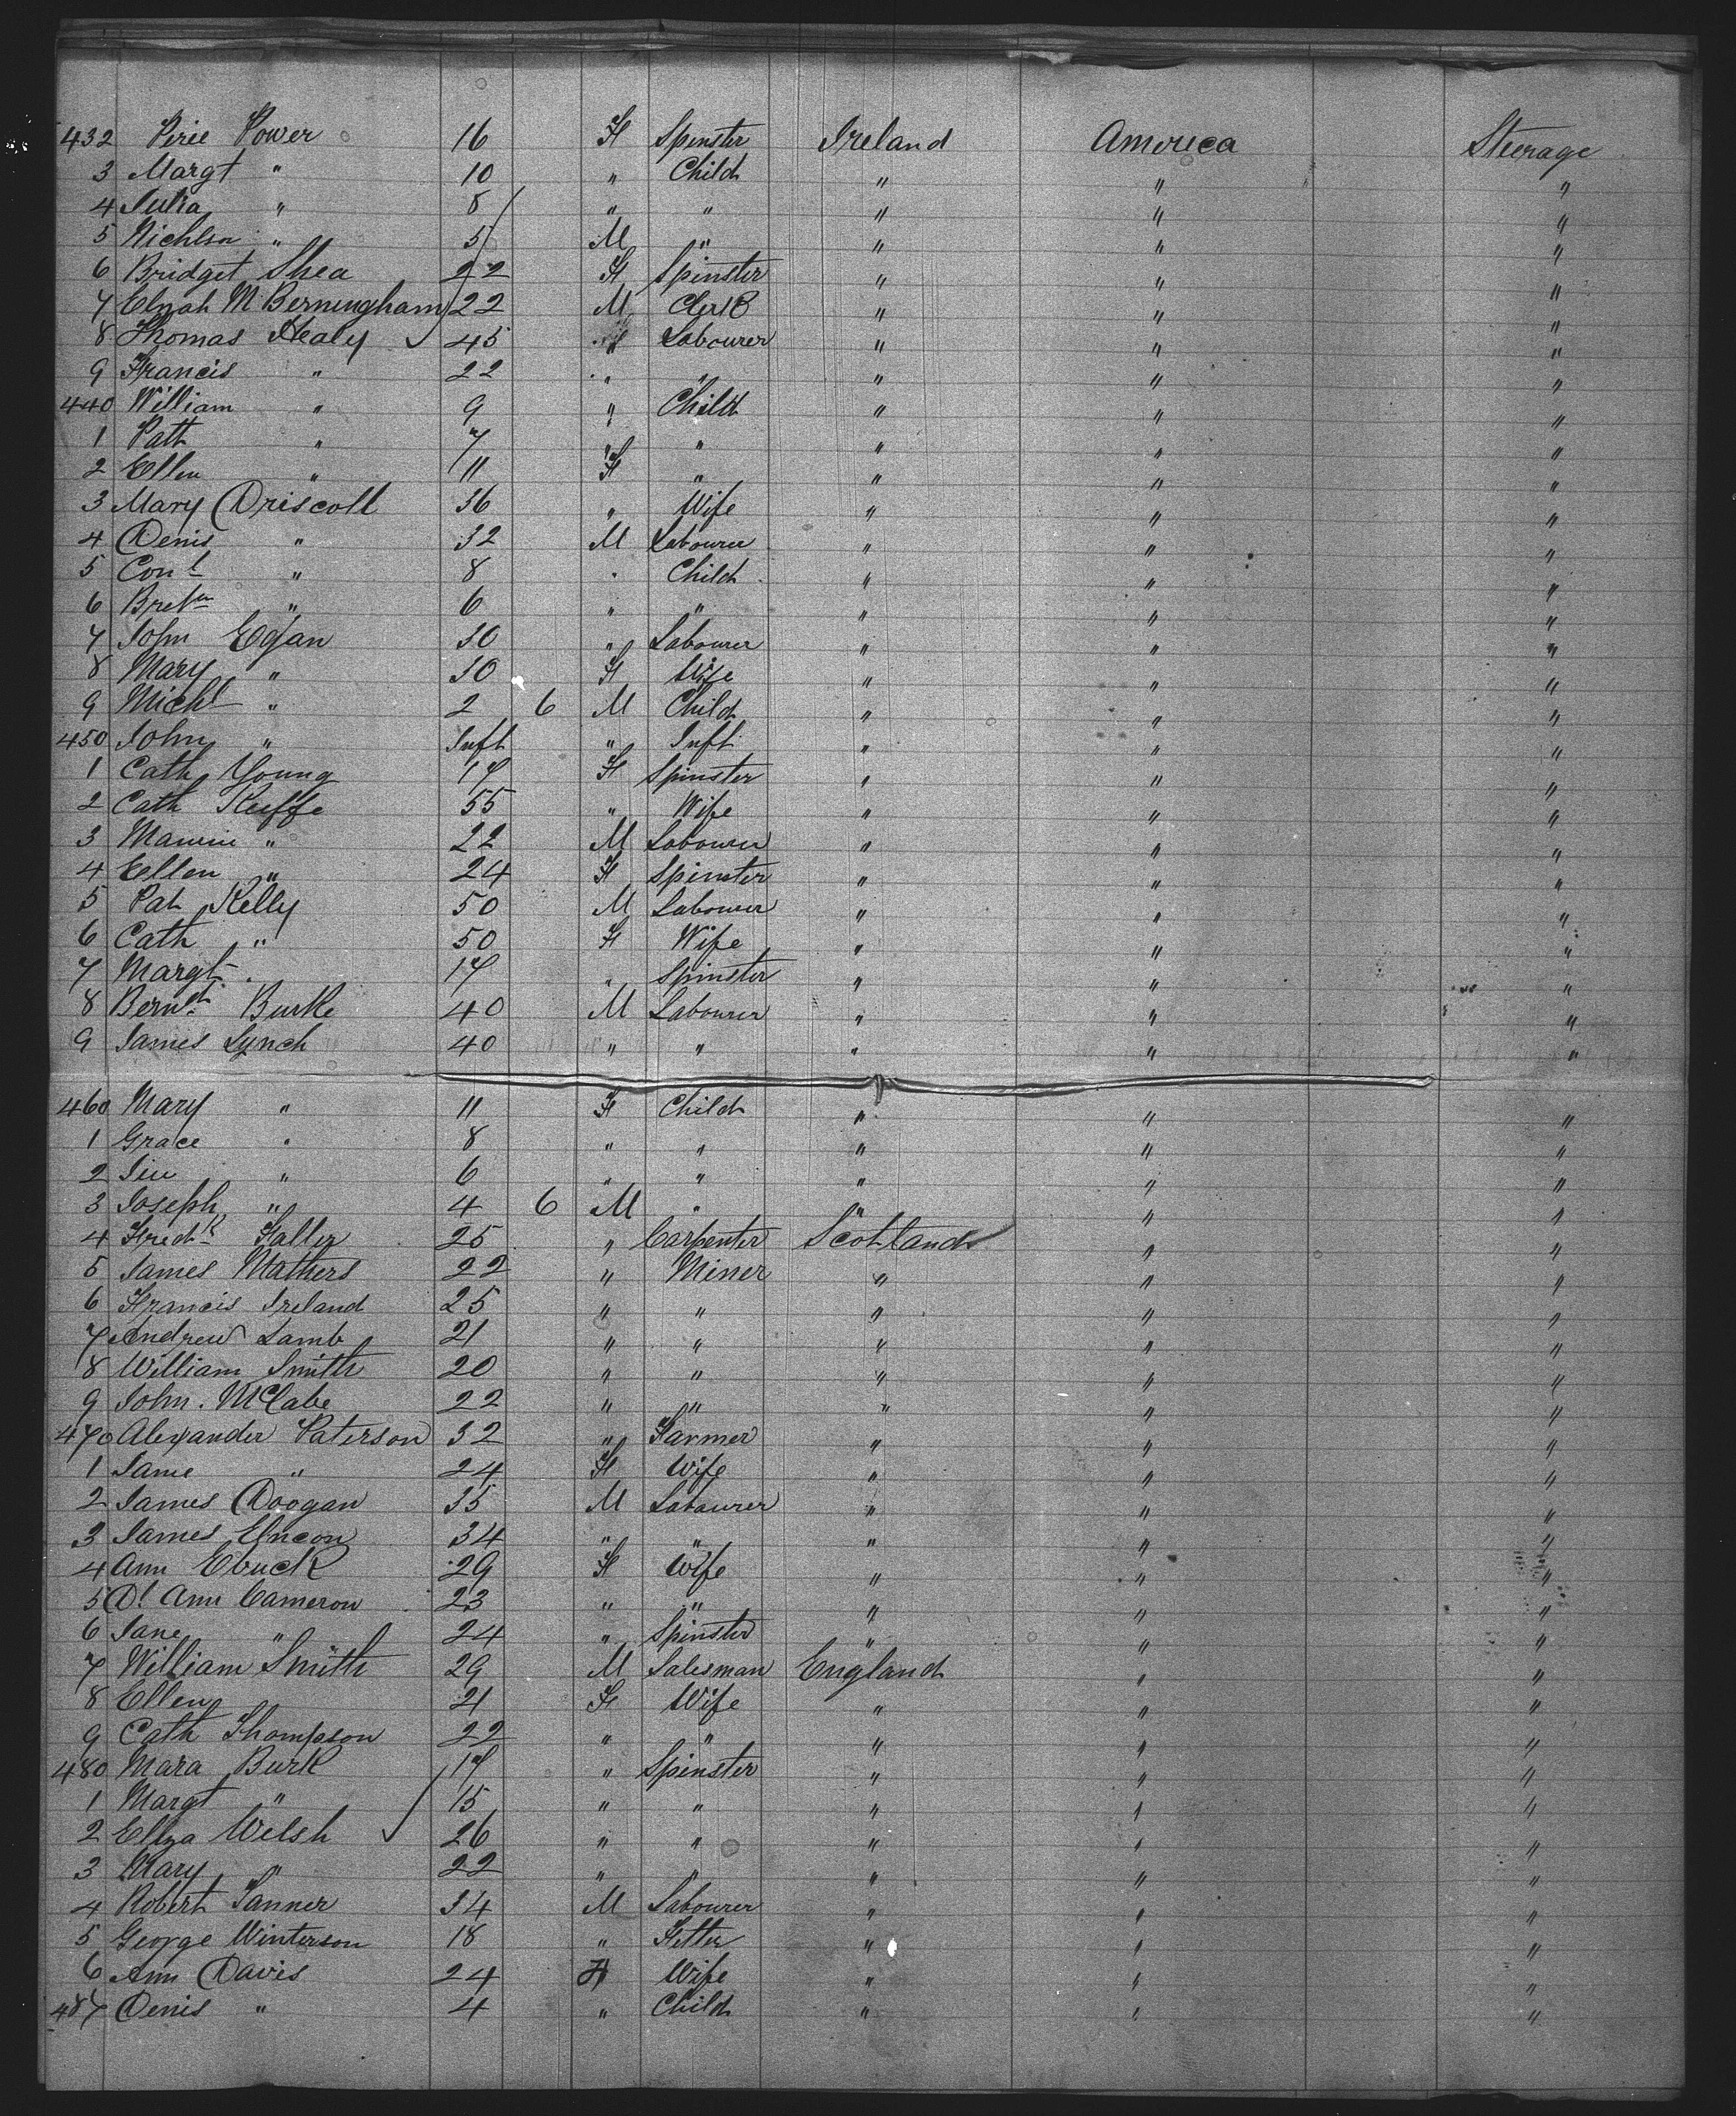 432 Power 16 F Spinster Ireland America Steerage
3 Margt " 10 " Child " " "
4 Julia " 8 " " " " "
5 " 5 M " " " "
6 Bridget Shea 22 F Spinster " " "
7 M Bermingham 22 M Clerk " " "
8 Thomas Healy 45 " Labourer " " "
9 Francis " 22 " " " " "
440 William " 9 " Child " " "
1 Patt " 7 " " " " "
2 Ellen " 11 F " " " "
3 Mary Driscoll 36 " Wife " " "
4 Denis " 32 M Labourer " " "
5 Conl " 8 " Child " " "
6 " 6 " " " " "
7 John Egan 30 " Labourer " " "
8 Mary " 30 F Wife " " "
9 Michl " 2 6 M Child " " "
450 John " Inft " Inft " " "
1 Cath Young 17 F Spinster " " "
2 Cath Keiffe 55 " Wife " " "
3 " 22 M Labourer " " "
4 Ellen " 24 F Spinster " " "
5 Pat Kelly 50 M Labourer " " "
6 Cath " 50 F Wife " " "
7 Margt " 17 " Spinster " " "
8 Burke 40 M Labourer " " "
9 James Lynch 40 " " " " "
460 Mary " 11 F Child " " "
1 Grace " 8 " " " " "
2 " 6 " " " " "
3 Joseph " 4 6 M " " " "
4 Fredk 25 " Carpenter Scotland " "
5 James Mathers 22 " Miner " " "
6 Francis Ireland 25 " " " " "
7 Andrew Lamb 21 " " " " "
8 William Smith 20 " " " " "
9 John McCabe 22 " " " " "
470 Alexander Paterson 32 " Farmer " " "
1 Jane " 24 F Wife " " "
2 James Doogan 35 M Labourer " " "
3 James 34 " " " " "
4 Ann 29 F Wife " " "
5 Ann Cameron 23 " " " " "
6 Jane " 24 " Spinster " " "
7 William Smith 29 M Salesman England " "
8 Ellen 21 F Wife " " "
9 Cath Thompson 22 " " " " "
480 Mara Burk 17 " Spinster " " "
1 Margt " 15 " " " " "
2 Eliza Welsh 26 " " " " "
3 Mary " 22 " " " " "
4 Robert Tanner 34 M Labourer " " "
5 George Winterson 18 " Fitter " " "
6 Ann Davis 24 F Wife " " "
487 Denis " 4 " Child " " "